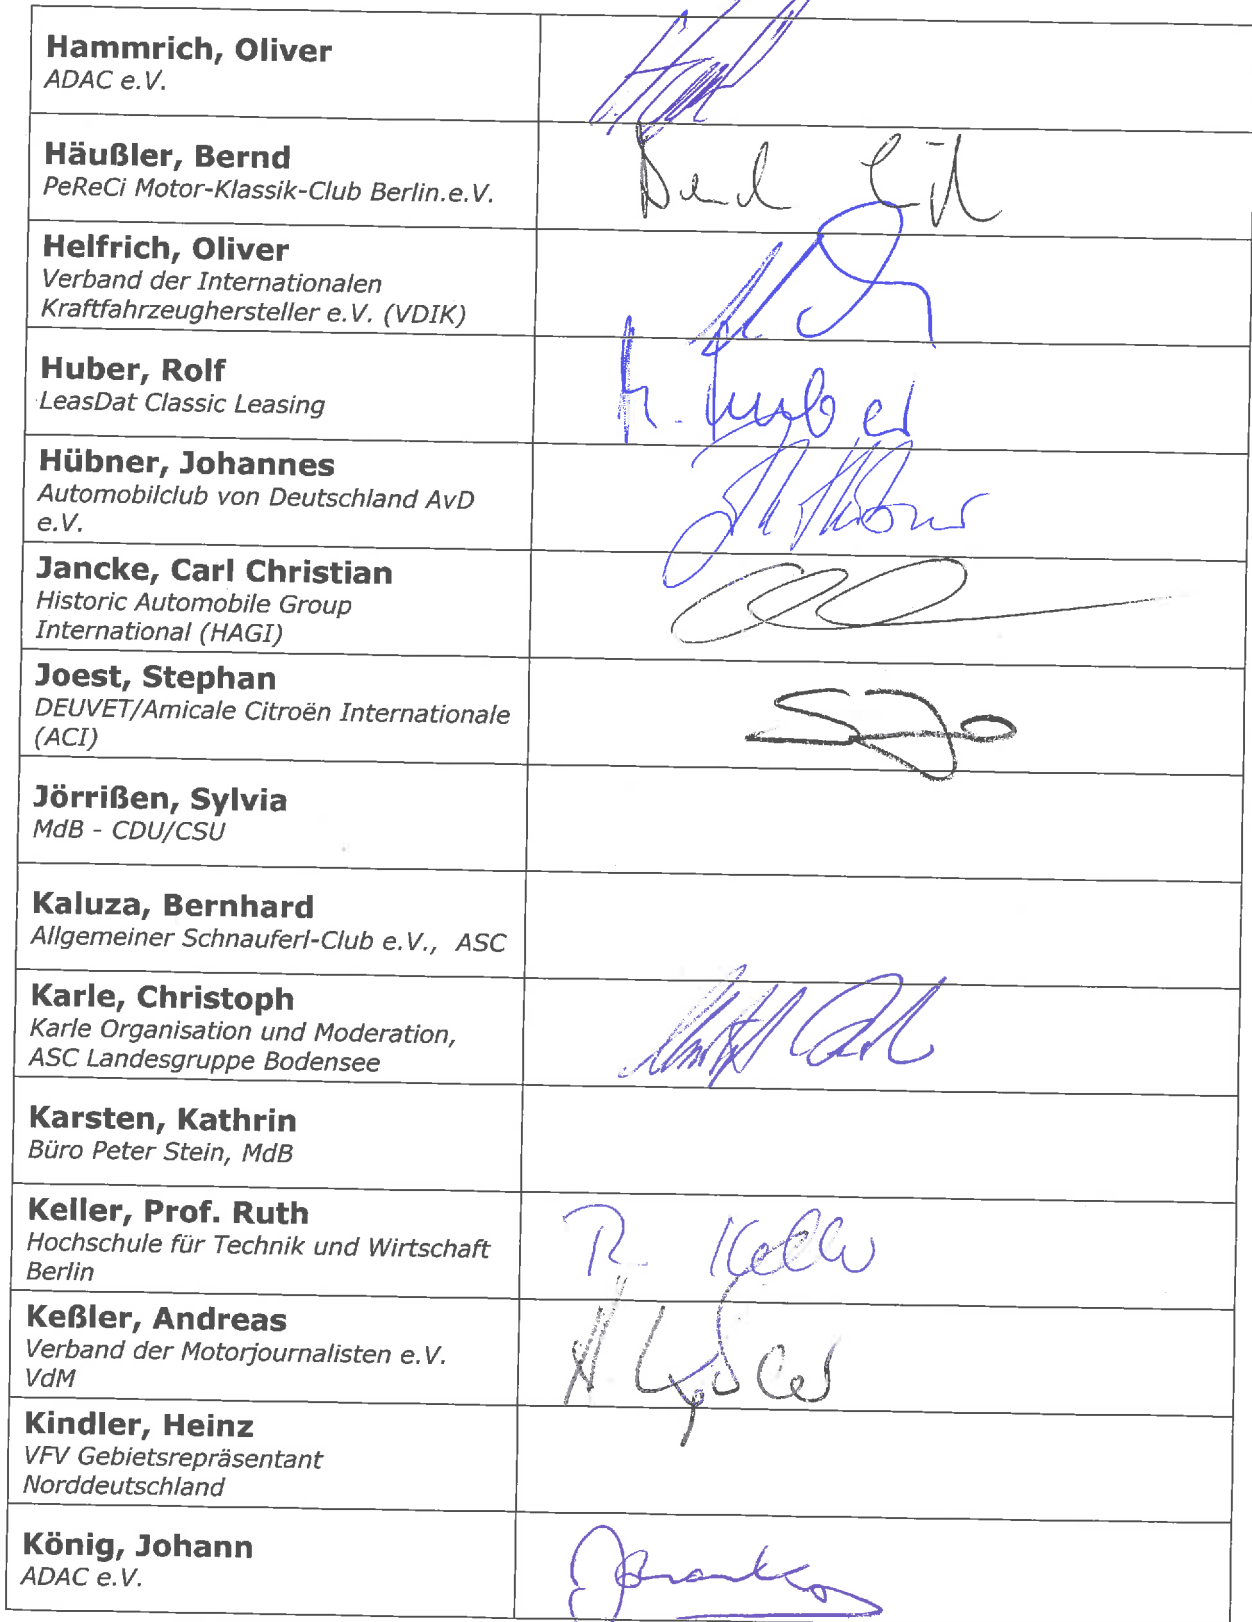 Hammrich, Oliver
ADAC e.V.
Häußler, Bernd
PeReCi Motor-Klassik-Club Berlin.e.V.
Helfrich, Oliver
Verband der Internationalen
Kraftfahrzeughersteller e.V. (VDIK)
Huber, Rolf
LeasDat Classic Leasing
R. Huber
Hübner, Johannes
Automobilclub von Deutschland AvD
e.V.
Jancke, Carl Christian
Historic Automobile Group
International (HAGI)
Joest, Stephan
DEUVET/Amicale Citroën Internationale
(ACI)
Jörrißen, Sylvia
MdB - CDU/CSU
Kaluza, Bernhard
Allgemeiner Schnauferl-Club e.V., ASC
Karle, Christoph
Karle Organisation und Moderation,
ASC Landesgruppe Bodensee
Karsten, Kathrin
Büro Peter Stein, MdB
Keller, Prof. Ruth
Hochschule für Technik und Wirtschaft
Berlin
R. Keller
Keßler, Andreas
Verband der Motorjournalisten e.V.
VdM
Kindler, Heinz
VFV Gebietsrepräsentant
Norddeutschland
König, Johann
ADAC e.V.